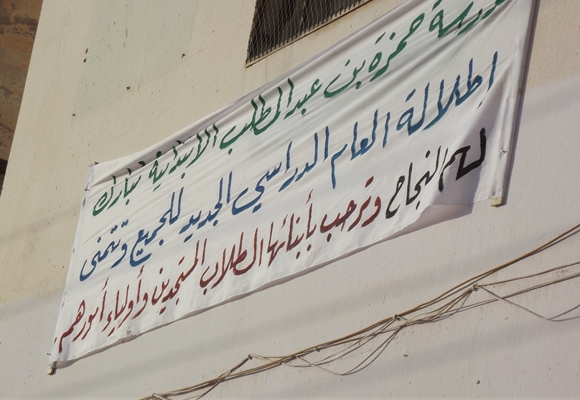 مدرسة حمزة بن عبد المطلب الابتدائية تبارك
اطلالة العام الدراسي الجديد للجميع وتتمنى
لهم النجاح وترحب بأبنائها الطلاب المستجدين وأولياء أمورهم.